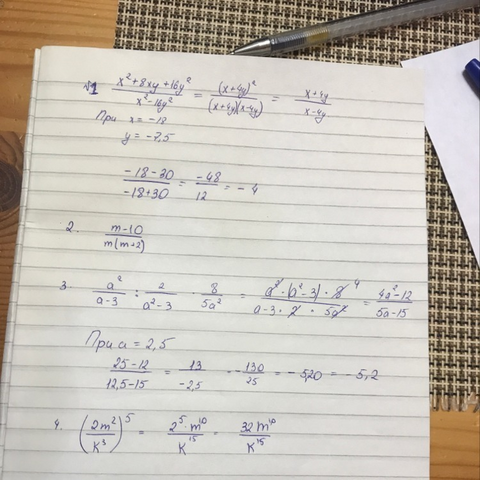 №1 (x²+8xy+16y²)/(x²-16y²) = (x+4y)²/((x+4y)(x-4y)) = (x+4y)/(x-4y)
При x = -18
y = -7,5
(-18-30)/(-18+30) = -48/12 = -4
2. (m-10)/(m(m+2))
3. a²/(a-3) : 2/(a²-3) · 8/(5a²) = (a²·(a²-3)·8 4)/(a-3·2·5a²) = (4a²-12)/(5a-15)
При a = 2,5
(25-12)/(12,5-15) = 13/(-2,5) = -130/25 = -5,20 = -5,2
4. (2m²/k³)⁵ = (2⁵·m¹⁰)/k¹⁵ = 32m¹⁰/k¹⁵